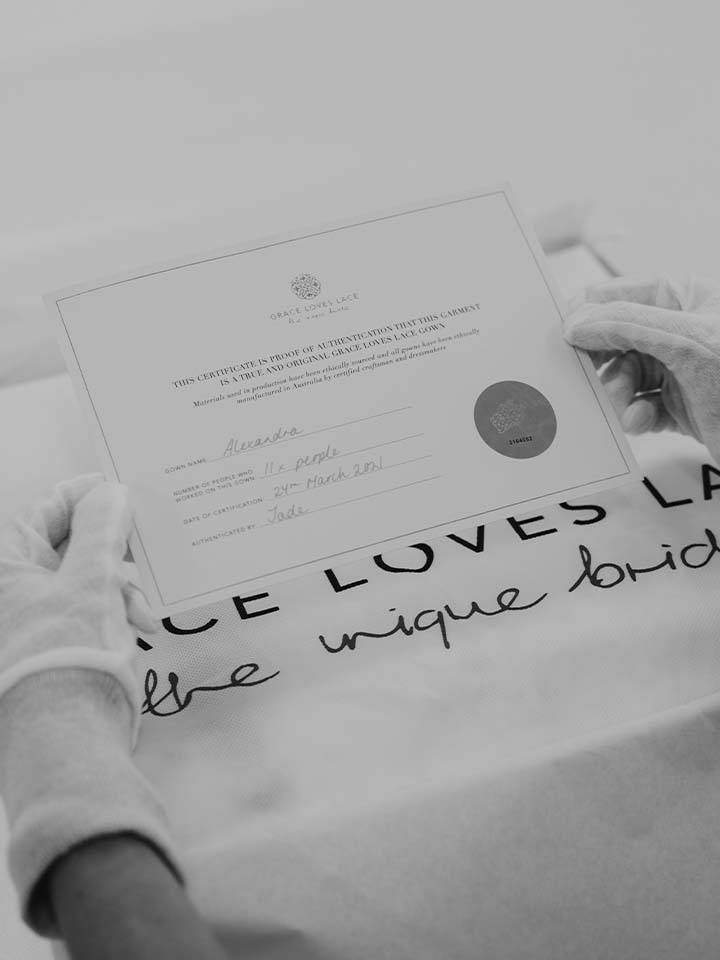 GRACE LOVES LACE
the unique bride
THIS CERTIFICATE IS PROOF OF AUTHENTICATION THAT THIS GARMENT
IS A TRUE AND ORIGINAL GRACE LOVES LACE GOWN
Materials used in production have been ethically sourced and all gowns have been ethically
manufactured in Australia by certified craftsman and dressmakers
GOWN NAME Alexandra
NUMBER OF PEOPLE WHO
WORKED ON THIS GOWN 11 x people
DATE OF CERTIFICATION 24th March 2021
AUTHENTICATED BY Jade
2104052
ACE LOVES LA
the unique brid